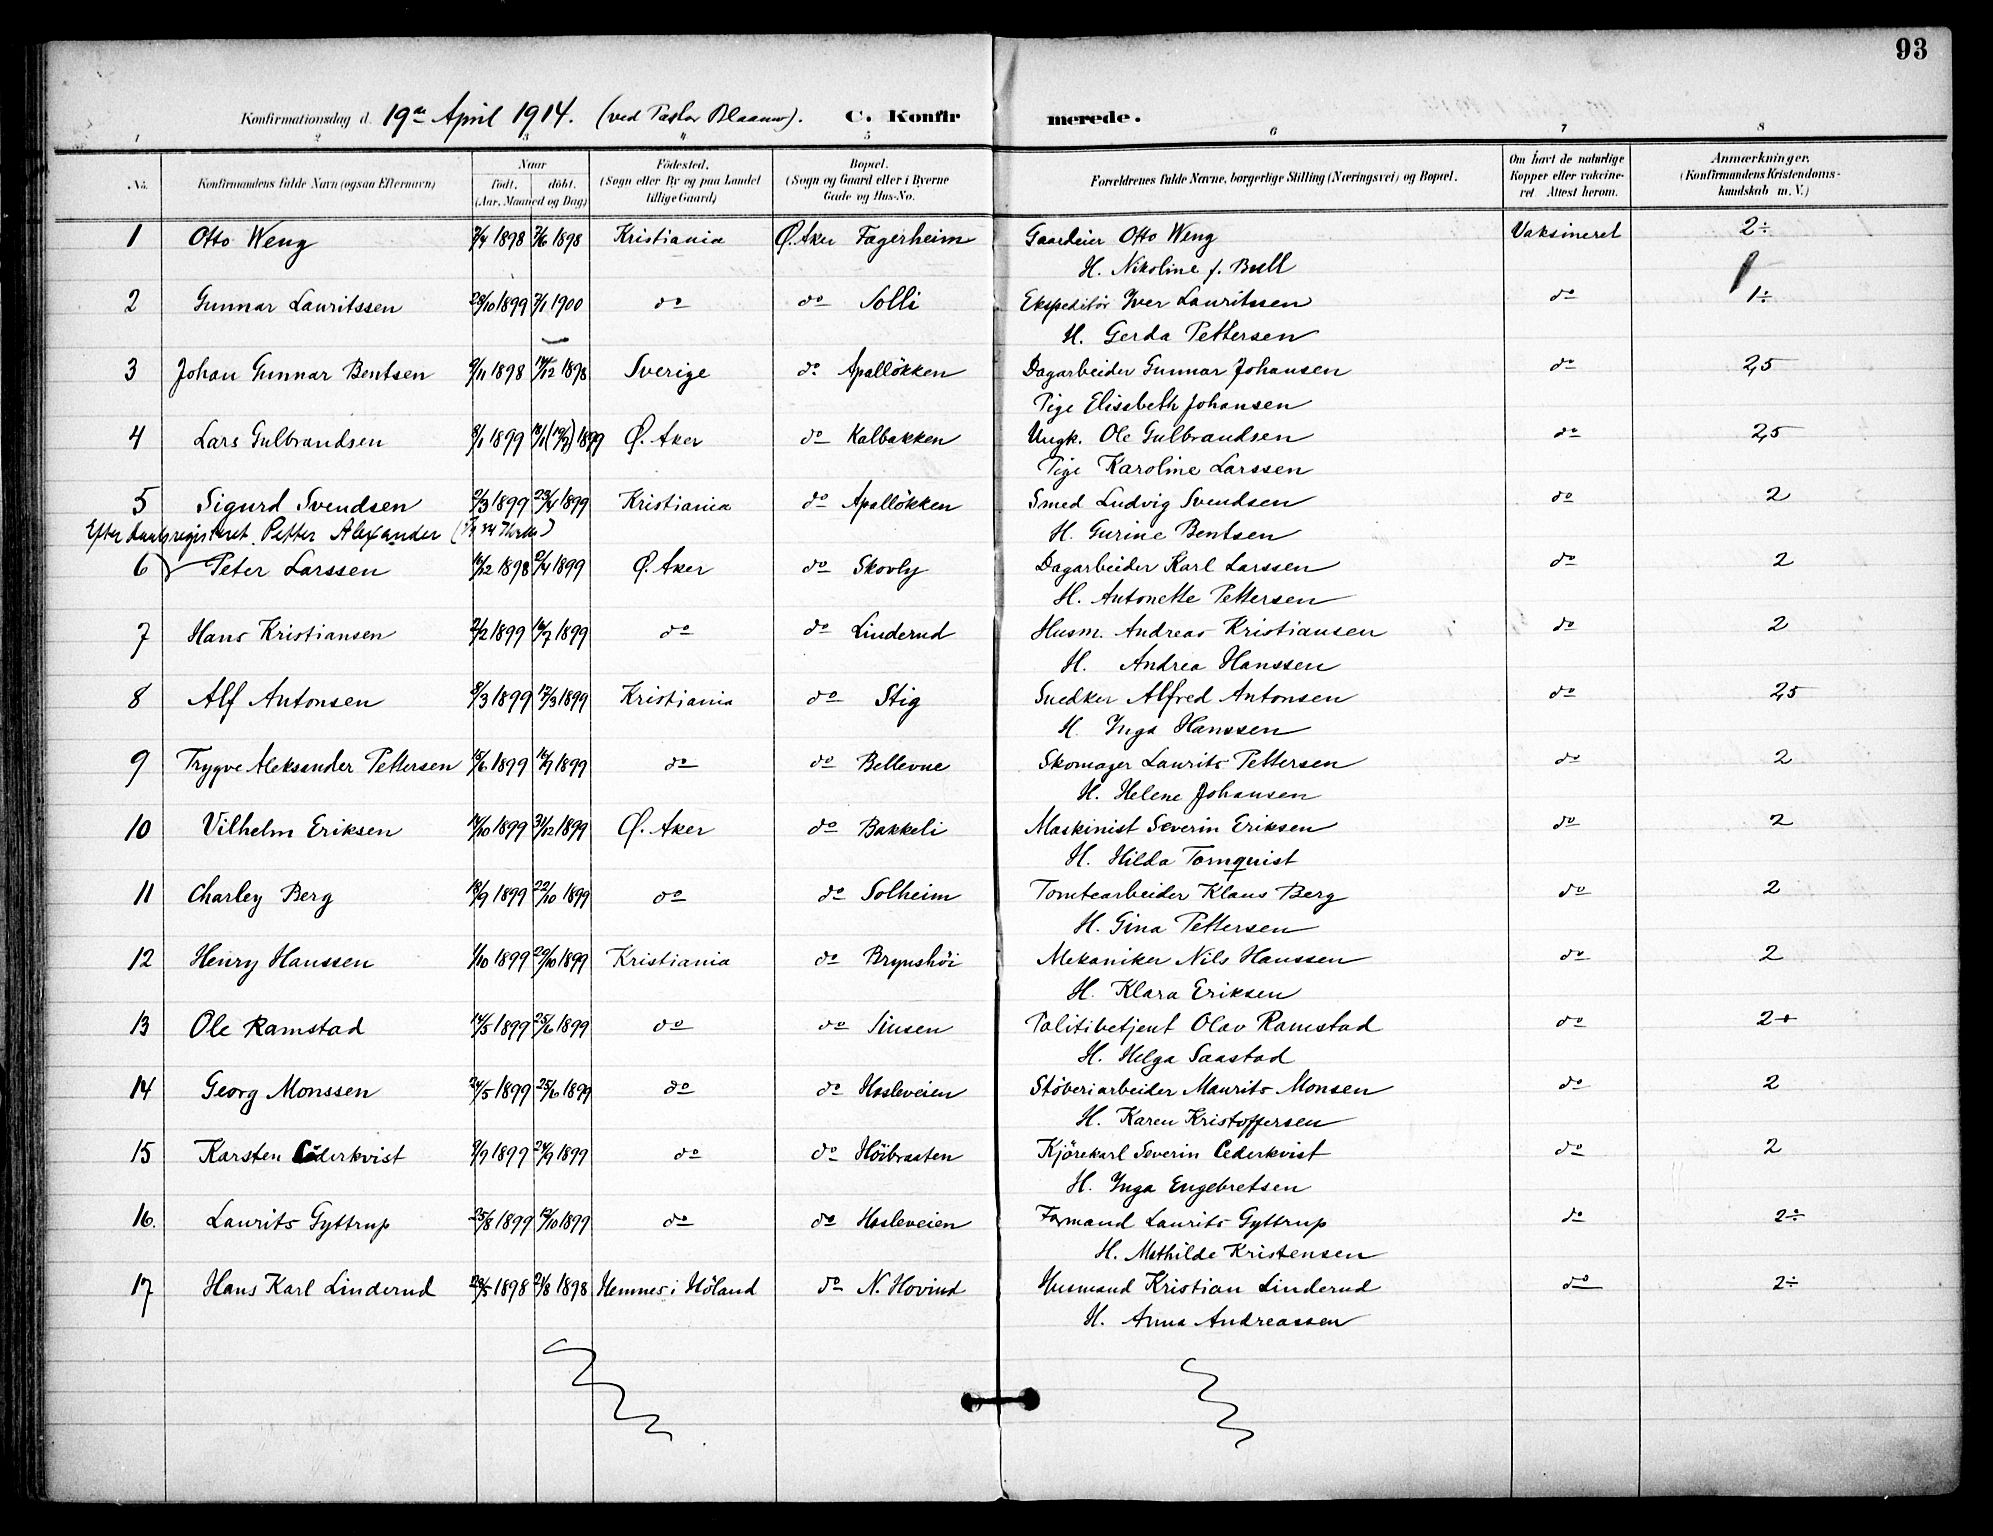 93
Konfirmationsdag d. 19de April 1914. (ved Pastor Blaauw). C. Konfirmerede.
1 2 3 4 5 6 7 8
No. Konfirmandens fulde Navn (ogsaa Efternavn) Naar født, døbt. (Aar, Maaned og Dag) Fødested. (Sogn eller By og paa Landet tillige Gaard) Bopæl. (Sogn og Gaard eller i Byerne Gade og Hus-No. Forældrenes fulde Navne, borgerlige Stilling (Næringsvei) og Bopæl. Om havt de naturlige Kopper eller vakcineret. Attest herom. Anmærkninger. (Konfirmandens Kristendomskundskab m. V.)
1 Otto Weng 7/4 1898 1898 Kristiania Ø. Aker Fagerheim Gaardeier Otto Weng Vaksineret 2÷
H. Nikoline f. Bull
2 Gunnar Lauritssen 28/10 1899 7/1 1900 do do Solli Ekspeditör Iver Lauritssen do 1÷
H. Gerda Pettersen
3 Johan Gunnar Bentsen 9/11 1898 14/12 1898 Sverige do Apalløkken Dagarbeider Gunnar Johansen do 2,5
Pige Elisabeth Johansen
4 Lars Gulbrandsen 8/1 1899 1899 Ø. Aker do Kalbakken Ungk. Ole Gulbrandsen do 2,5
Pige Karoline Larssen
5 Sigurd Svendsen 2/3 1899 23/4 1899 Kristiania do Apalløkken Smed Ludvig Svendsen do 2
H. Gurine Bentsen
Efter daabsregisteret Petter Alexander
6 Peter Larssen 16/12 1898 2/4 1899 Ø. Aker do Skovly Dagarbeider Karl Larssen do 2
H. Antonette Pettersen
7 Hans Kristiansen 2/2 1899 16/7 1899 do do Linderud Husm. Andreas Kristiansen do 2
H. Andrea Hanssen
8 Alf Antonsen 8/3 1899 17/3 1899 Kristiania do Stig Snedker Alfred Antonsen do 2,5
H. Inga Hanssen
9 Trygve Aleksander Pettersen 15/6 1899 1899 do do Bellevue Skomager Laurits Pettersen do 2
H. Helene Johansen
10 Vilhelm Eriksen 14/10 1899 31/12 1899 Ø. Aker do Bakkeli Maskinist Severin Eriksen do 2
H. Hilda Tornquist
11 Charley Berg 18/9 1899 22/10 1899 do do Solheim Tomtearbeider Klaus Berg do 2
H. Gina Pettersen
12 Henry Hanssen 1/10 1899 29/10 1899 Kristiania do Brynshöi Mekaniker Nils Hanssen do 2
H. Klara Eriksen
13 Ole Ramstad 14/5 1899 25/6 1899 do do Sinsen Politibetjent Olav Ramstad do 2+
H. Helga Saastad
14 Georg Monssen 24/5 1899 25/6 1899 do do Hasleveien Støberiarbeider Maurits Monsen do 2
H. Karen Kristoffersen
15 Karsten Cederkvist 9/9 1899 24/9 1899 do do Höibraaten Kjörekarl Severin Cederkvist do 2
H. Inga Engebretsen
16. Laurits Gyttrup 25/8 1899 12/10 1899 do do Hasleveien Formand Laurits Gyttrup do 2÷
H. Mathilde Kristensen
17 Hans Karl Linderud 28/5 1898 21/8 1898 Hemnes i Höland do N. Hovind Husmand Kristian Linderud do 2÷
H. Anna Andreassen